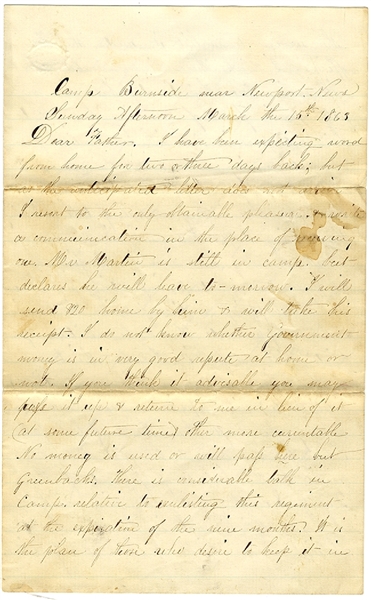 Camp Burnside near Newport News
Sunday Afternoon March the 15th 1863
Dear Father, I have been expecting word
from home for two or three days back; but
as the anticipated letter does not arrive
I resort to the only obtainable pleasure & write
a communication in the place of receiving
one. Mr Martin is still in camp but
declares he will leave to-morrow. I will
send $20 home by him & will take his
receipt. I do not know whether Government
money is in very good repute at home or
not. If you think it advisable you may
it up & return to me in lieu of it
(at some future time) other more
No money is used or will pass here but
Greenbacks. There is considerable talk in
Camp relative to enlisting this regiment
at the expiration of the nine months. It is
the plan of those who desire to keep it in